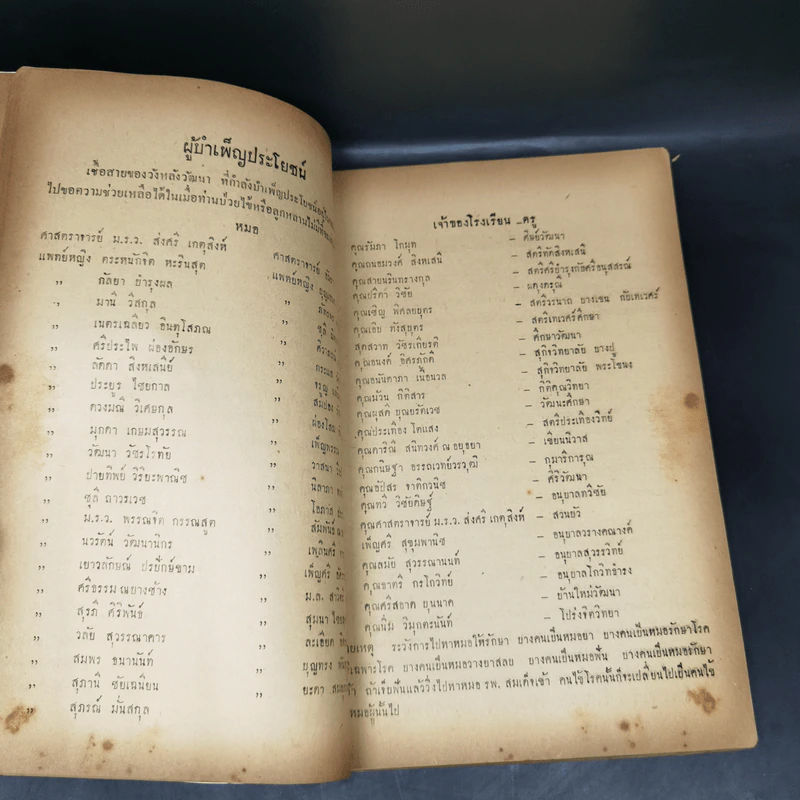 ผู้บำเพ็ญประโยชน์
เชื้อสายของวังหลังวัฒนา ที่กำลังบำเพ็ญประโยชน์
ไปขอความช่วยเหลือได้ในเมื่อท่านป่วยไข้หรือลูกหลานไม่มีที่
หมอ
ศาสตราจารย์ ม.ร.ว. ส่งศรี เกตุสิงห์ ศาสตราจารย์
แพทย์หญิง ตระหนักจิต หะรินสุต แพทย์หญิง
,, กัลยา บำรุงผล ,,
,, มานี วิสกุล ,, ชุลี
,, เนตรเฉลียว อินทุโสภณ ,,
,, ศรีประไพ ผ่องอักษร ,,
,, ลัดดา สิงหเสนีย์ ,, จรูญ
,, ประยูร ไชยกาล ,, สมปอง
,, ดวงมณี วิเศษกุล ,,
,, มุกดา เกษมสุวรรณ ,,
,, วัฒนา วัชรโรทัย ,, วาสนา
,, ปายทิพย์ วิริยะพาณิช ,, นิลาภา
,, ชุลี ถาวรเวช ,, โอภาส
,, ม.ร.ว. พรรณจิต กรรณสูต ,, สัมพันธ์
,, นวรัตน์ วัฒนานิกร ,, เพลินศรี
,, เยาวลักษณ์ ปรปักษ์ขาม ,, เพ็ญศรี
,, ศรีธรรม ณ บางช้าง ,, ม.ล.
,, สุรภี ศิริพันธ์ ,, สุมนา
,, วลัย สุวรรณาคาร ,, ละเอียด
,, สมพร ธนานันท์ ,, บุญทรง
,, สุภานี ชัยเฉนียน ,, ยะดา
,, สุภรณ์ มั่นสกุล
เจ้าของโรงเรียน – ครู
คุณรัมภา โกมุท – ศิษย์วัฒนา
คุณถนอมวงศ์ สิงหเสนี – สตรีทัดสิงหเสนี
คุณสายนรินทรางกูล – สตรีศรีบำรุงกัลศรีอนุสสรณ์
คุณปรีดา วิชัย – ผดุงดรุณ
คุณเชิญ พิศลยบุตร – สตรีวรนาถ บางเขน กับเทเวศร์
คุณเอิบ ทังสุบุตร – สตรีเทเวศร์ศึกษา
สุดสวาท วัชรเกียรติ – ศึกษาวัฒนา
คุณอนงค์ อิศรภักดี – สุกิจวิทยาลัย บางปู
คุณอนันตาภา เนื่อนวล – สุกิจวิทยาลัย พระโขนง
คุณมัวัน กิติสาร – กิติคุณวิทยา
คุณผุสดี บุณยรัตเวช – วัฒนะศึกษา
คุณประเทือง โตแสง – สตรีประเทืองวิทย์
คุณดาริณี สนิทวงศ์ ณ อยุธยา – เซียนนิวาส
คุณกนิษฐา อรรถเวทย์วรวุฒิ – กุมาริการุณ
คุณอัปสร ชาติกวนิช – ศิริวัฒนา
คุณทวี วิชัยดิษฐ์ – อนุบาลทวีชัย
คุณศาสตราจารย์ ม.ร.ว. ส่งศรี เกตุสิงห์ – สวนบัว
เพ็ญศรี สุขุมพานิช – อนุบาลวรางคณางค์
คุณลมัย สุวรรณานนท์ – อนุบาลสุวรรวิทย์
คุณชาตรี กรโกวิทย์ – อนุบาลโกวิทธำรง
คุณศรีสอาด บุนนาค – บ้านใหม่วัฒนา
คุณนิ่ม วิมุกตนันท์ – โปร่งจิตวิทยา
ยเหตุ ระวังการไปหาหมอให้รักษา บางคนเป็นหมอยา บางคนเป็นหมอรักษาโรค
เฉพาะโรค บางคนเป็นหมอวางยาสลบ บางคนเป็นหมอฟัน บางคนเป็นหมอรักษา
ถ้าเจ็บฟันแล้ววิ่งไปหาหมอ รพ. สมเด็จเข้า คนไข้โรคนั้นก็จะเปลี่ยนไปเป็นคนไข้
หมอผู้นั้นไป